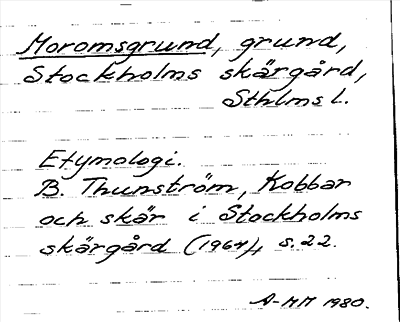 Moromsgrund, grund,
Stockholms skärgård,
Sthlms l.
Etymologi.
B. Thunström, Kobbar
och skär i Stockholms
skärgård (1964), s. 22.
A-MM 1980.